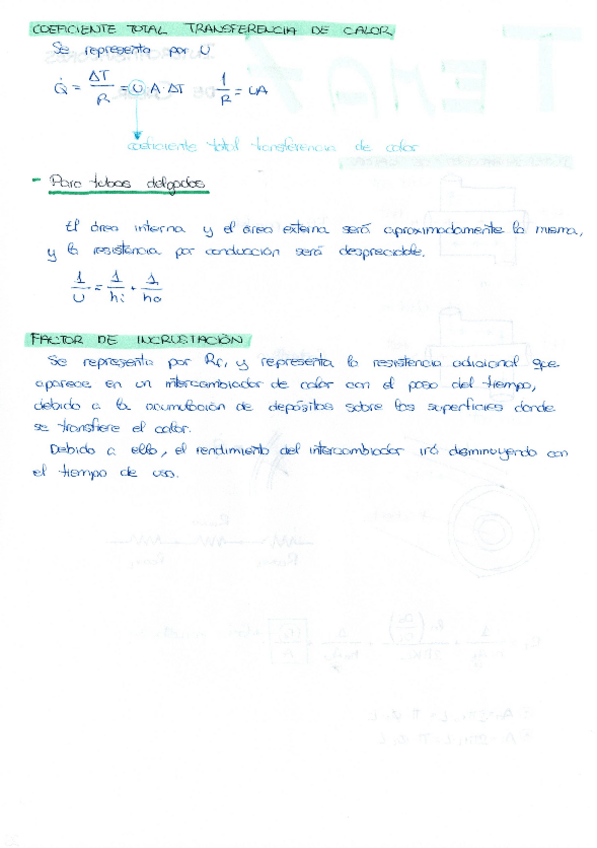 COEFICIENTE TOTAL TRANSFERENCIA DE CALOR
Se representa por U
Q̇ = ΔT/R = U·A·ΔT   1/R = UA
coeficiente total transferencia de calor
- Para tubos delgados
El área interna y el área externa será aproximadamente la misma,
y la resistencia por conducción será despreciable.
1/U = 1/hi + 1/ho
FACTOR DE INCRUSTACIÓN
Se representa por Rf, y representa la resistencia adicional que
aparece en un intercambiador de calor con el paso del tiempo,
debido a la acumulación de depósitos sobre las superficies donde
se transfiere el calor.
Debido a ello, el rendimiento del intercambiador irá disminuyendo con
el tiempo de uso.